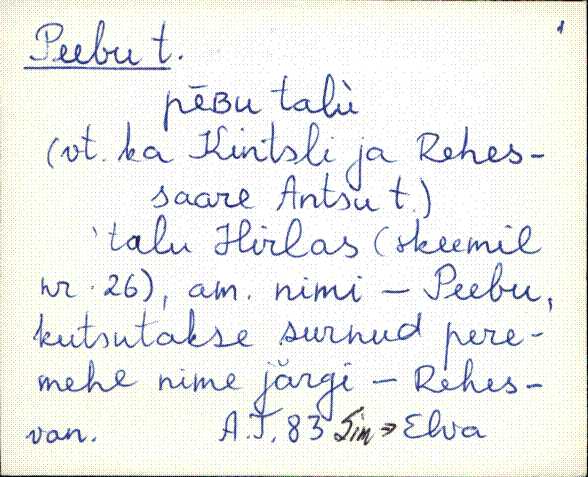 1
Peebu t.
pēʙu talù
(vt. ka Kintsli ja Rehes-
saare Antsu t.)
`talu Hirlas (skeemil
nr. 26), am. nimi – Peebu,
kutsutakse surnud pere-
mehe nime järgi – Rehes-
van. A.T. 83 Sim → Elva